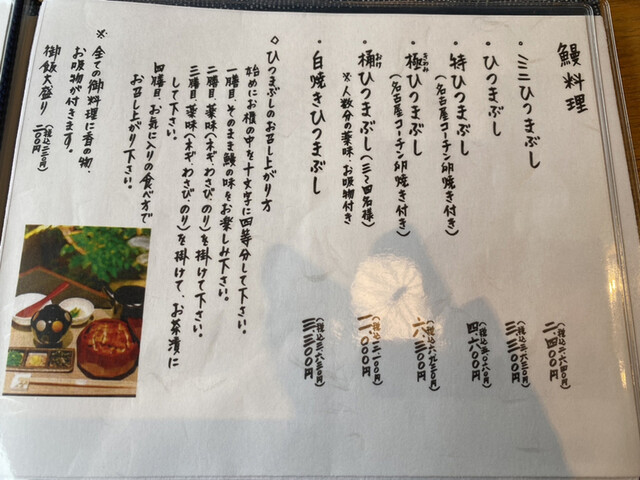 鰻料理
・ミニひつまぶし 二、四〇〇円
(税込二、六四〇円)
・ひつまぶし 三、三〇〇円
(税込三、六三〇円)
・特ひつまぶし 四、六〇〇円
(名古屋コーチン卵焼き付き) (税込五、〇六〇円)
・極ひつまぶし 六、三〇〇円
きわみ
(名古屋コーチン卵焼き付き) (税込六、九三〇円)
・桶ひつまぶし(三〜四名様) 一一、〇〇〇円
おけ
※人数分の薬味、お吸物付き (税込一二、一〇〇円)
・白焼きひつまぶし 三、三〇〇円
(税込三、六三〇円)
◇ひつまぶしのお召し上がり方
始めにお櫃の中を十文字に四等分して下さい。
一膳目、そのまま鰻の味をお楽しみ下さい。
二膳目、薬味(ネギ、わさび、のり)を掛けて下さい。
三膳目、薬味(ネギ、わさび、のり)を掛けて、お茶漬に
して下さい。
四膳目、お気に入りの食べ方で
お召し上がり下さい。
※全ての御料理に香の物、
お吸物が付きます。
御飯大盛り 二〇〇円
(税込二二〇円)